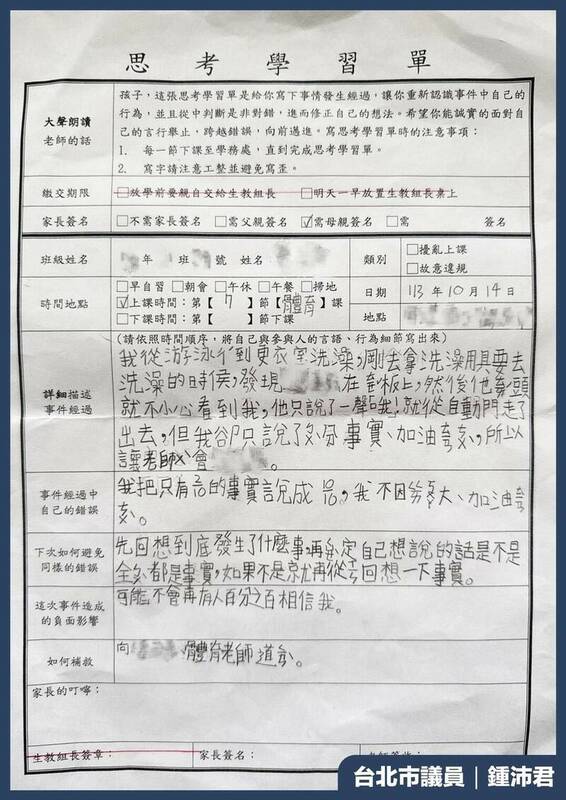 思考學習單
大聲朗讀
老師的話
孩子，這張思考學習單是給你寫下事情發生經過，讓你重新認識事件中自己的
行為，並且從中判斷是非對錯，進而修正自己的想法。希望你能誠實的面對自
己的言行舉止，跨越錯誤，向前邁進。寫思考學習單時的注意事項：
1. 每一節下課至學務處，直到完成思考學習單。
2. 寫字請注意工整並避免寫歪。
繳交期限
□放學前要親自交給生教組長 □明天一早放置生教組長桌上
家長簽名
□不需家長簽名 □需父親簽名 ☑需母親簽名 □需 簽名
班級姓名
年 班 號 姓名
類別
□擾亂上課
□故意違規
時間地點
□早自習 □朝會 □午休 □午餐 □掃地
☑上課時間：第【 7 】節【體育】課
□下課時間：第【 】節下課
日期
113 年 10 月 14 日
地點
詳細描述
事件經過
(請依照時間順序，將自己與參與人的言語、行為細節寫出來)
我從游泳行到更衣室洗澡，剛去拿洗澡用具要去
洗澡的時候，發現 在 板上，然後他 頭
就不小心看到我，他只說了一聲 我!就從自動門走了
出去，但我卻只說了 分事實、加油 ，所以
讓老師 會 。
事件經過中
自己的錯誤
我把只有 的事實說成 ，我不因 大、加油
。
下次如何避免
同樣的錯誤
先回想到底發生了什麼事，再 定自己想說的話是不是
全 都是事實，如果不是就再從 回想一下事實。
這次事件造成
的負面影響
可能不會再有人百分之百相信我。
如何補救
向 體育老師道 。
家長的叮嚀：
生教組長簽章：
家長簽名：
台北市議員｜鍾沛君